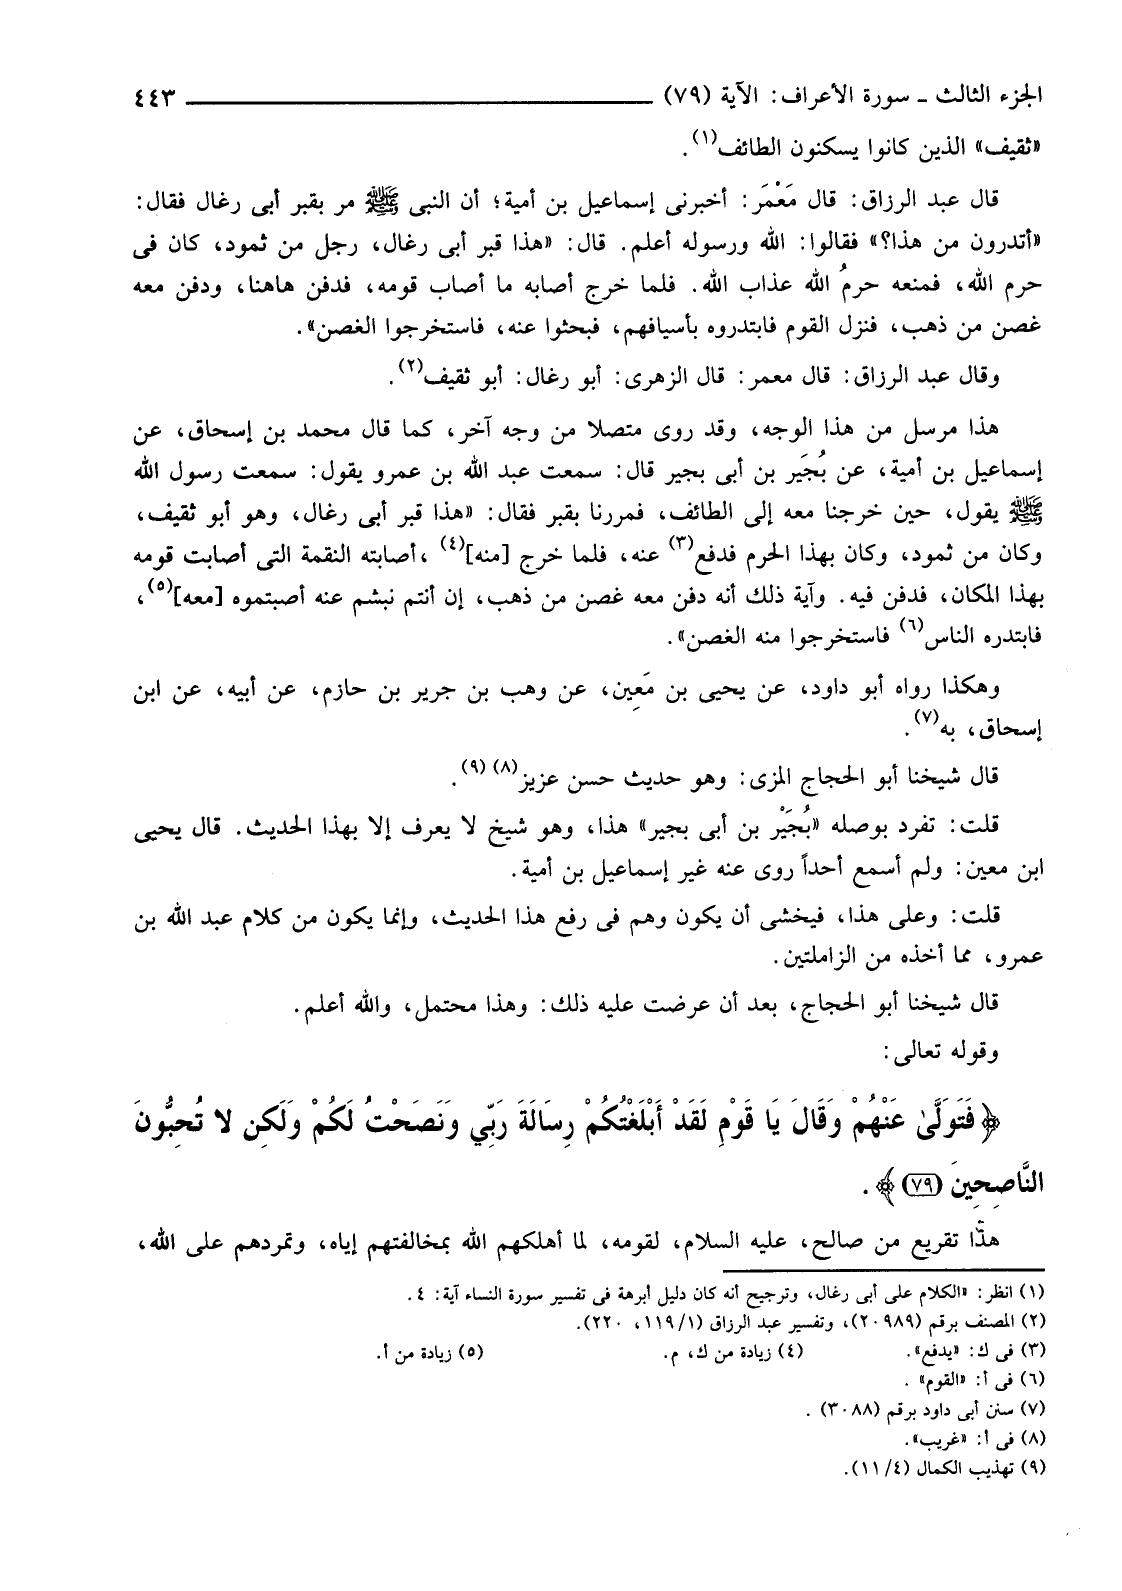 الجزء الثالث ـ سورة الأعراف: الآية (٧٩) ٤٤٣
«ثقيف» الذين كانوا يسكنون الطائف(١).
قال عبد الرزاق: قال مَعْمَر: أخبرنى إسماعيل بن أمية؛ أن النبى ﷺ مر بقبر أبى رغال فقال:
«أتدرون من هذا؟» فقالوا: الله ورسوله أعلم. قال: «هذا قبر أبى رغال، رجل من ثمود، كان فى
حرم الله، فمنعه حرمُ الله عذاب الله. فلما خرج أصابه ما أصاب قومه، فدفن هاهنا، ودفن معه
غصن من ذهب، فنزل القوم فابتدروه بأسيافهم، فبحثوا عنه، فاستخرجوا الغصن».
وقال عبد الرزاق: قال معمر: قال الزهرى: أبو رغال: أبو ثقيف(٢).
هذا مرسل من هذا الوجه، وقد روى متصلا من وجه آخر، كما قال محمد بن إسحاق، عن
إسماعيل بن أمية، عن بُجَير بن أبى بجير قال: سمعت عبد الله بن عمرو يقول: سمعت رسول الله
ﷺ يقول، حين خرجنا معه إلى الطائف، فمررنا بقبر فقال: «هذا قبر أبى رغال، وهو أبو ثقيف،
وكان من ثمود، وكان بهذا الحرم فدفع(٣) عنه، فلما خرج [منه](٤) ،أصابته النقمة التى أصابت قومه
بهذا المكان، فدفن فيه. وآية ذلك أنه دفن معه غصن من ذهب، إن أنتم نبشتم عنه أصبتموه [معه](٥)،
فابتدره الناس(٦) فاستخرجوا منه الغصن».
وهكذا رواه أبو داود، عن يحيى بن مَعِين، عن وهب بن جرير بن حازم، عن أبيه، عن ابن
إسحاق، به(٧).
قال شيخنا أبو الحجاج المزى: وهو حديث حسن عزيز(٨) (٩).
قلت: تفرد بوصله «بُجَيْر بن أبى بجير» هذا، وهو شيخ لا يعرف إلا بهذا الحديث. قال يحيى
ابن معين: ولم أسمع أحداً روى عنه غير إسماعيل بن أمية.
قلت: وعلى هذا، فيخشى أن يكون وهم فى رفع هذا الحديث، وإنما يكون من كلام عبد الله بن
عمرو، مما أخذه من الزاملتين.
قال شيخنا أبو الحجاج، بعد أن عرضت عليه ذلك: وهذا محتمل، والله أعلم.
وقوله تعالى:
﴿فَتَوَلَّىٰ عَنْهُمْ وَقَالَ يَا قَوْمِ لَقَدْ أَبْلَغْتُكُمْ رِسَالَةَ رَبِّي وَنَصَحْتُ لَكُمْ وَلَكِن لا تُحِبُّونَ
النَّاصِحِينَ (٧٩)﴾ .
هذا تقريع من صالح، عليه السلام، لقومه، لما أهلكهم الله بمخالفتهم إياه، وتمردهم على الله،
(١) انظر: «الكلام على أبى رغال، وترجيح أنه كان دليل أبرهة فى تفسير سورة النساء آية: ٤ .
(٢) المصنف برقم (٢٠٩٨٩)، وتفسير عبد الرزاق (١/ ١١٩، ٢٢٠).
(٣) فى ك: «يدفع». (٤) زيادة من ك، م. (٥) زيادة من أ.
(٦) فى أ: «القوم» .
(٧) سنن أبى داود برقم (٣٠٨٨) .
(٨) فى أ: «غريب».
(٩) تهذيب الكمال (٤/ ١١).